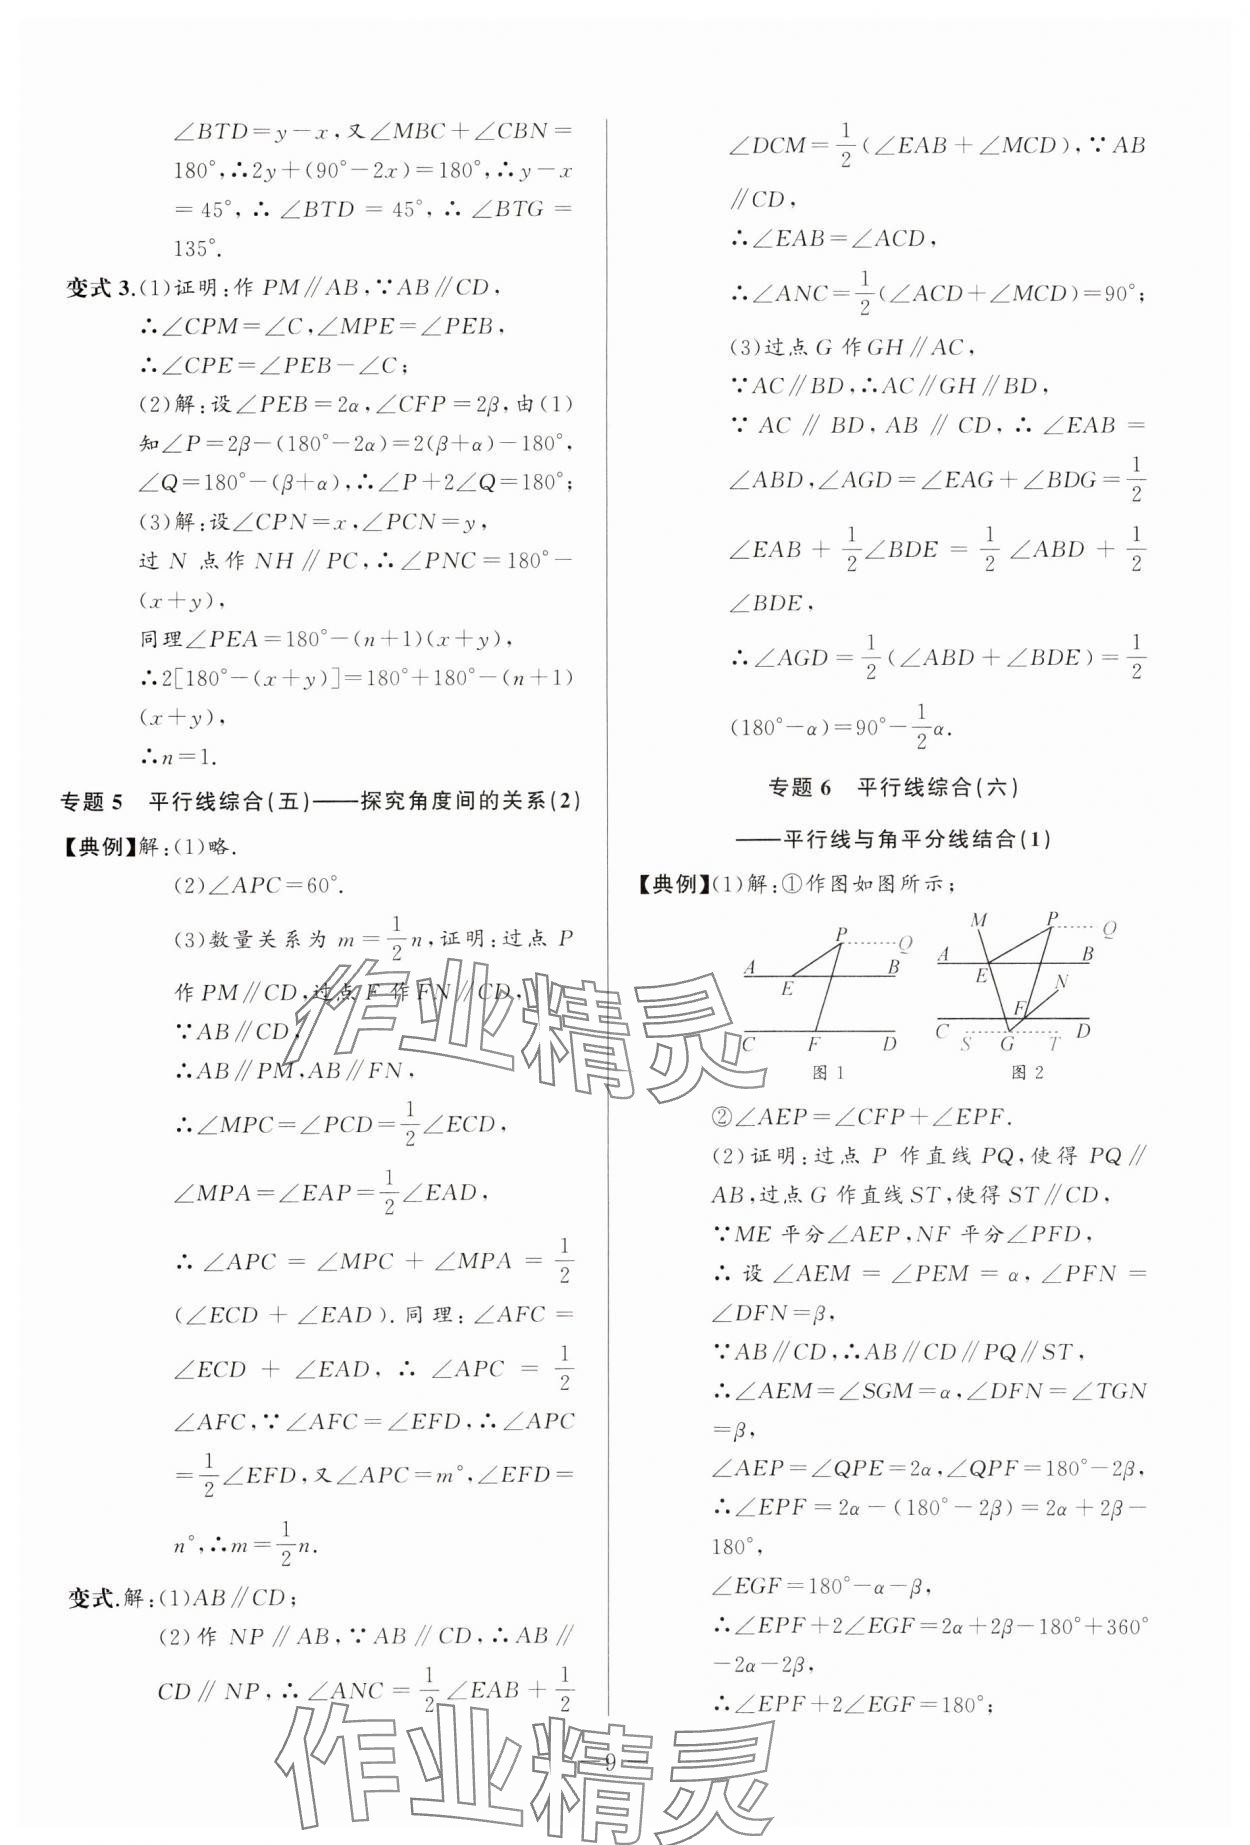 ∠BTD=y-x,又∠MBC+∠CBN=
180°,∴2y+(90°-2x)=180°,∴y-x
=45°,∴∠BTD=45°,∴∠BTG=
135°.
变式3.(1)证明:作PM∥AB,∵AB∥CD,
∴∠CPM=∠C,∠MPE=∠PEB,
∴∠CPE=∠PEB-∠C;
(2)解:设∠PEB=2α,∠CFP=2β,由(1)
知∠P=2β-(180°-2α)=2(β+α)-180°,
∠Q=180°-(β+α),∴∠P+2∠Q=180°;
(3)解:设∠CPN=x,∠PCN=y,
过N点作NH∥PC,∴∠PNC=180°-
(x+y),
同理∠PEA=180°-(n+1)(x+y),
∴2[180°-(x+y)]=180°+180°-(n+1)
(x+y),
∴n=1.
专题5 平行线综合(五)——探究角度间的关系(2)
【典例】解:(1)略.
(2)∠APC=60°.
(3)数量关系为m=1/2n,证明:过点P
作PM∥CD,过点F作FN∥CD,
∵AB∥CD,
∴AB∥PM,AB∥FN,
∴∠MPC=∠PCD=1/2∠ECD,
∠MPA=∠EAP=1/2∠EAD,
∴∠APC=∠MPC+∠MPA=1/2
(∠ECD+∠EAD).同理:∠AFC=
∠ECD+∠EAD,∴∠APC=1/2
∠AFC,∵∠AFC=∠EFD,∴∠APC
=1/2∠EFD,又∠APC=m°,∠EFD=
n°,∴m=1/2n.
变式.解:(1)AB∥CD;
(2)作NP∥AB,∵AB∥CD,∴AB∥
CD∥NP,∴∠ANC=1/2∠EAB+1/2
∠DCM=1/2(∠EAB+∠MCD),∵AB
∥CD,
∴∠EAB=∠ACD,
∴∠ANC=1/2(∠ACD+∠MCD)=90°;
(3)过点G作GH∥AC,
∵AC∥BD,∴AC∥GH∥BD,
∵AC∥BD,AB∥CD,∴∠EAB=
∠ABD,∠AGD=∠EAG+∠BDG=1/2
∠EAB+1/2∠BDE=1/2∠ABD+1/2
∠BDE,
∴∠AGD=1/2(∠ABD+∠BDE)=1/2
(180°-α)=90°-1/2α.
专题6 平行线综合(六)
——平行线与角平分线结合(1)
【典例】(1)解:①作图如图所示;
P Q A B E C F D
图1
M P Q A B E N F C D S G T
图2
②∠AEP=∠CFP+∠EPF.
(2)证明:过点P作直线PQ,使得PQ∥
AB,过点G作直线ST,使得ST∥CD,
∵ME平分∠AEP,NF平分∠PFD,
∴设∠AEM=∠PEM=α,∠PFN=
∠DFN=β,
∵AB∥CD,∴AB∥CD∥PQ∥ST,
∴∠AEM=∠SGM=α,∠DFN=∠TGN
=β,
∠AEP=∠QPE=2α,∠QPF=180°-2β,
∴∠EPF=2α-(180°-2β)=2α+2β-
180°,
∠EGF=180°-α-β,
∴∠EPF+2∠EGF=2α+2β-180°+360°
-2α-2β,
∴∠EPF+2∠EGF=180°;
作业精灵
作业精灵
—9—